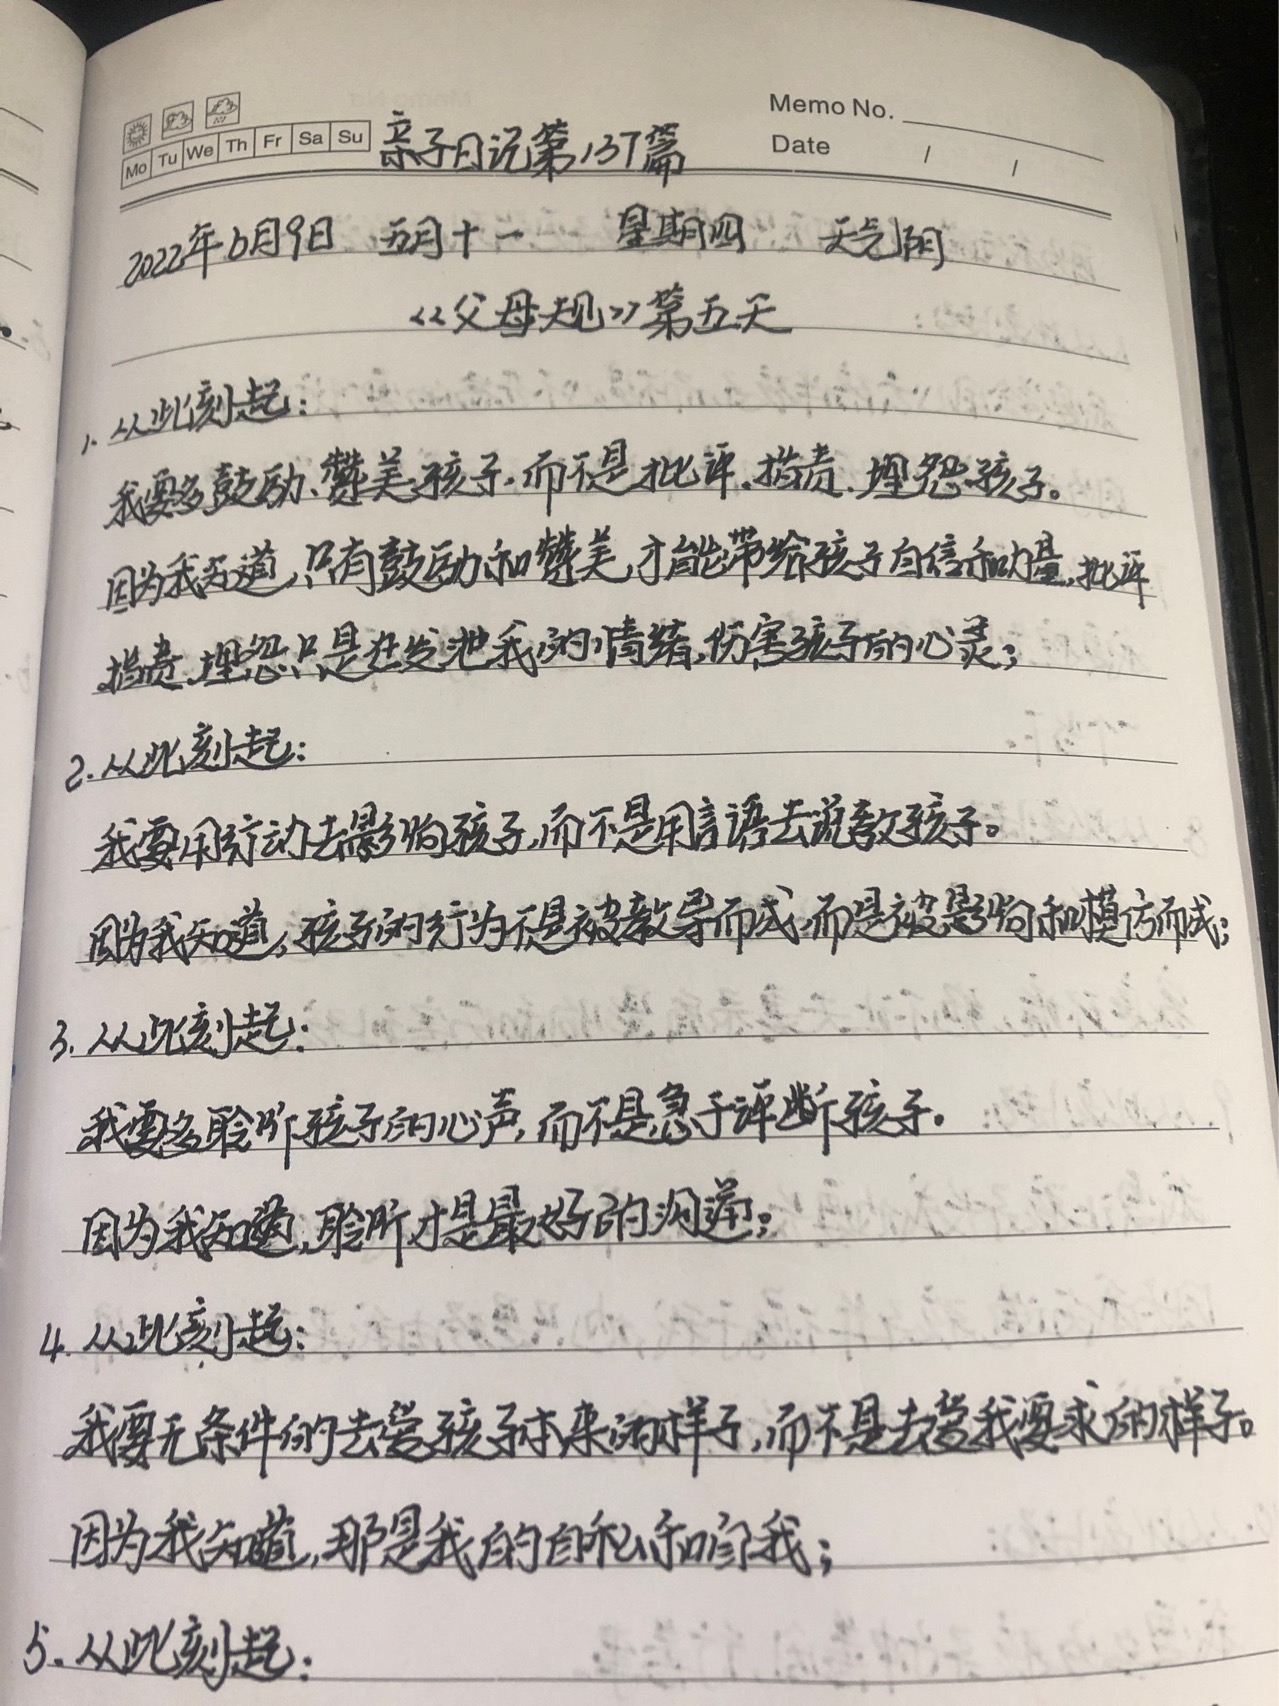 Memo No.
Mo Tu We Th Fr Sa Su
Date / /
亲子日记第137篇
2022年6月9日 五月十一 星期四 天气阴
《父母规》第五天
1. 从此刻起:
我要多鼓励、赞美孩子,而不是批评、指责、埋怨孩子。
因为我知道,只有鼓励和赞美,才能带给孩子自信和力量,批评
指责、埋怨只是在发泄我的情绪,伤害孩子的心灵;
2. 从此刻起:
我要用行动去影响孩子,而不是用言语去说教孩子。
因为我知道,孩子的行为不是被教导而成,而是被影响和模仿而成;
3. 从此刻起:
我要多聆听孩子的心声,而不是急于评断孩子。
因为我知道,聆听才是最好的沟通;
4. 从此刻起:
我要无条件的去爱孩子本来的样子,而不是去爱我要求的样子。
因为我知道,那是我的自私和自我;
5. 从此刻起: